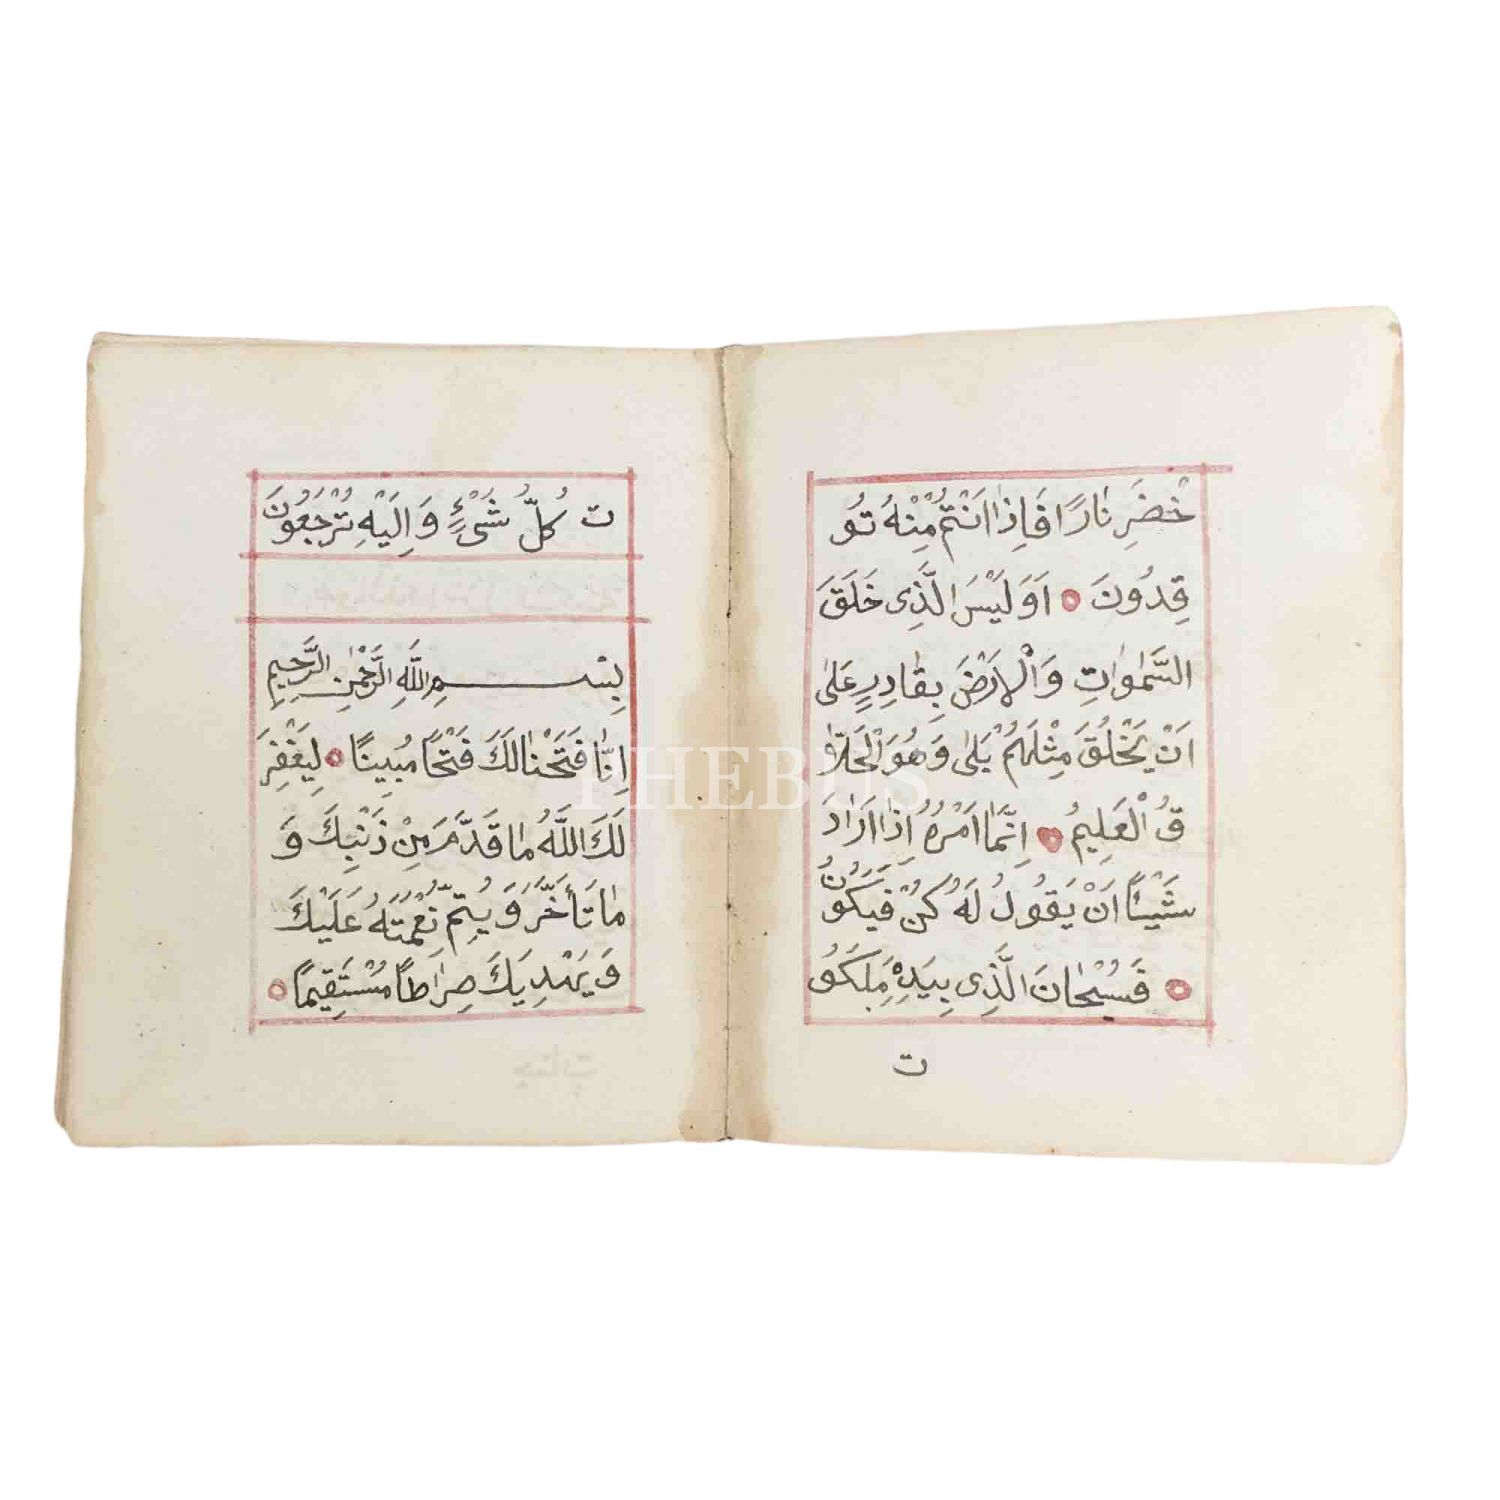 خْضَرِ نَارًا فَاِذَا اَنْتُمْ مِنْهُ تُو
قِدُونَ اَوَلَيْسَ الَّذِى خَلَقَ
السَّمٰوَاتِ وَالْاَرْضَ بِقَادِرٍ عَلٰى
اَنْ يَخْلُقَ مِثْلَهُمْ بَلٰى وَهُوَ الْخَلَّا
قُ الْعَلِيمُ اِنَّمَا اَمْرُهُ اِذَا اَرَادَ
شَيْئًا اَنْ يَقُولَ لَهُ كُنْ فَيَكُونُ
فَسُبْحَانَ الَّذِى بِيَدِهِ مَلَكُو
ت
ت كُلِّ شَىْءٍ وَاِلَيْهِ تُرْجَعُونَ
بِسْمِ اللَّهِ الرَّحْمٰنِ الرَّحِيمِ
اِنَّا فَتَحْنَا لَكَ فَتْحًا مُبِينًا لِيَغْفِرَ
لَكَ اللَّهُ مَا قَدَّمَ مِنْ ذَنْبِكَ وَ
مَا تَأَخَّرَ وَيُتِمَّ نِعْمَتَهُ عَلَيْكَ
وَيَهْدِيَكَ صِرَاطًا مُسْتَقِيمًا
PHEBUS